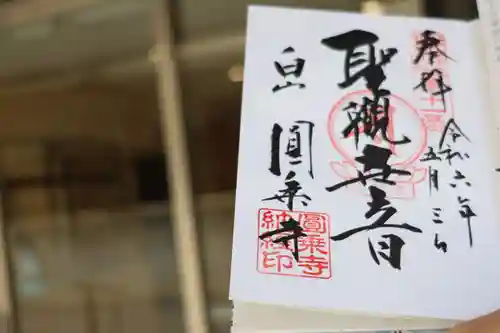 奉拝
令和六年
五月三日
聖觀世音
白山
圓乗寺
圓乗寺
納経印